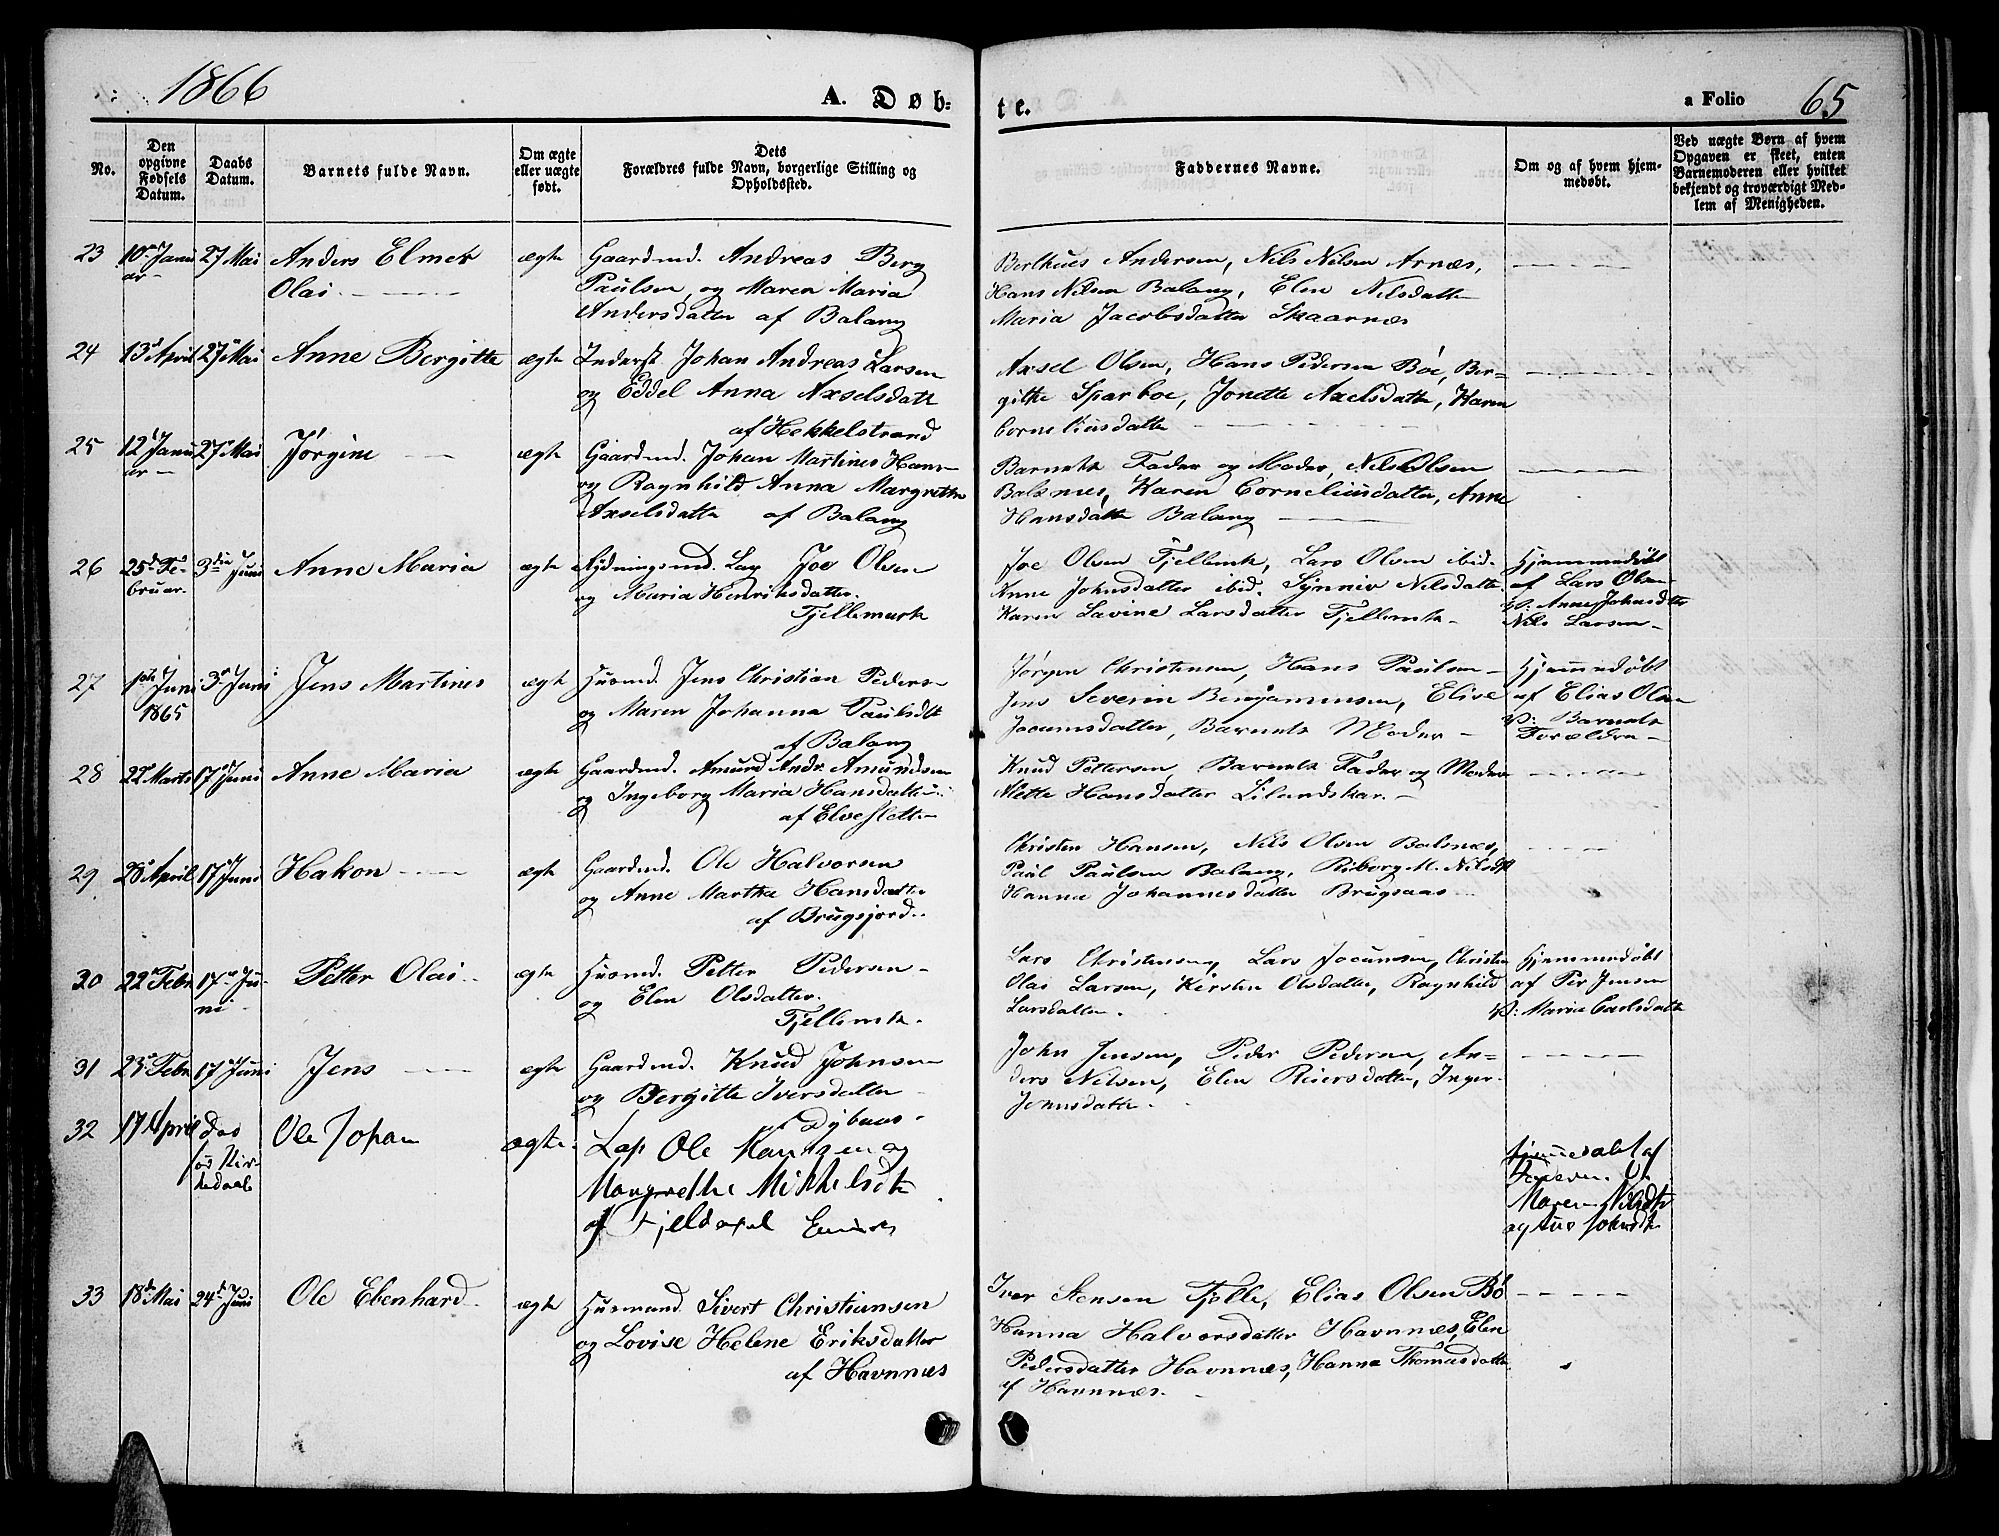 1866
A. Døb-
te.
a Folio 65
No.
Den opgivne Fødsels Datum.
Daabs Datum.
Barnets fulde Navn.
Om ægte eller uægte født.
Dets Forældres fulde Navn, borgerlige Stilling og Opholdssted.
Faddernes Navne.
Om og af hvem hjemmedøbt.
Ved uægte Børn af hvem Opgaven er skeet, enten Barnemoderen eller hvilket bekjendt og troværdigt Medlem af Menigheden.
23 10 Janu 27 Mai Anders Elmer ægte Gaardmd. Andreas Berg
ar Olai Paulsen og Maren Maria
Andersdatter af Balang
Berthues Andersen, Nils Nilsen Arnæs,
Hans Nilsen Balang, Elen Nilsdatte
Maria Jacobsdatter Skaarnæs
24 13 April 27 Mai Anne Bergitte ægte Inderst Johan Andreas Larsen
og Eddel Anna Axselsdatt
af Hekkelstrand
Axsel Olsen, Hans Pedersen Bøe, Ber=
githe Sparboe, Jonette Axelsdatte, Karen
Corneliusdatte
25 12 Janu 27 Mai Jørgine ægte Gaardmd. Johan Martines Hans
ar og Ragnhild Anna Margrethe
Axselsdatte af Balang
Barnets Fader og Moder, Nils Olsen
Balsnes, Karen Corneliusdatter, Anne
Hansdatte Balang
26 25 Fe- 3die Juni Anne Maria ægte Rydningsmd. Lap Joe Olsen
bruar. og Maria Henriksdatter.
Fjellemark
Joe Olsen Fjellemk, Lars Olsen ibid.
Anne Johnsdatter ibid. Synniv Nilsdatte
Karen Lavine Larsdatter Fjellemk
Hjemmedøbt
af Lars Olsen
V: Anne Johnsdtr
Nils Larsen
27 1 Juni 3 Juni Jens Martines ægte Husmd. Jens Christian Peders
1865 og Maren Johanna Paulsdt
af Balang
Jørgen Christensen, Hans Paulsen
Jens Severin Benjaminsen, Elise
Jocumsdatter, Barnets Moder
Hjemmedøbt
af Elias Olsen
V: Barnets
Forældre
28 22 Marts 17 Juni Anne Maria ægte Gaardmd. Amund Andr. Amundsen
og Ingeborg Maria Hansdatter
af Elveslett
Knud Pettersen, Barnets Fader og Moder
Mette Hansdatter Lilandskar.
29 28 April 17 Juni Hakon ægte Gaardmd. Ole Halvorsen
og Anne Martha Hansdatter
af Brugfjord.
Christen Hansen, Nils Olsen Balsnæs,
Paul Paulsen Balang, Riborg M. Nilsdt
Hanna Johannesdatter Brugsaas
30 22 Febr 17 Ju- Petter Olai ægte Husmd. Petter Pedersen
ni og Elen Olsdatter.
Fjellemk.
Lars Christensen, Lars Jocumsen, Christen
Olai Larsen, Kirsten Olsdatter, Ragnhild
Larsdatter.
Hjemmedøbt
af Per Jensen
V: Maria Carlsdatte
31 23 Febr 17 Juni Jens ægte Gaardmd. Knud Johnsen
og Bergitte Iversdatter
Dybaas
John Jensen, Peder Pedersen, An=
ders Nilsen, Elen Reiersdatter, Inger
Johnsdatte
32 17 April Ole Johan ægte. Lap Ole
og
Margrethe Mikkelsdt
af
af
V.
Maren Nilsdtr
og
33 18 Mai 24 Juni Ole Ebenhard ægte Husmand Sivert Christiansen
og Lovise Helene Eriksdatter
af Havnnæs
Iver Stensen Fjelle, Elias Olsen Bø
Hanna Halvorsdatter Havnnæs, Elen
Pedersdatter Havnnæs, Hanna Thomasdatte
af Havnnæs.